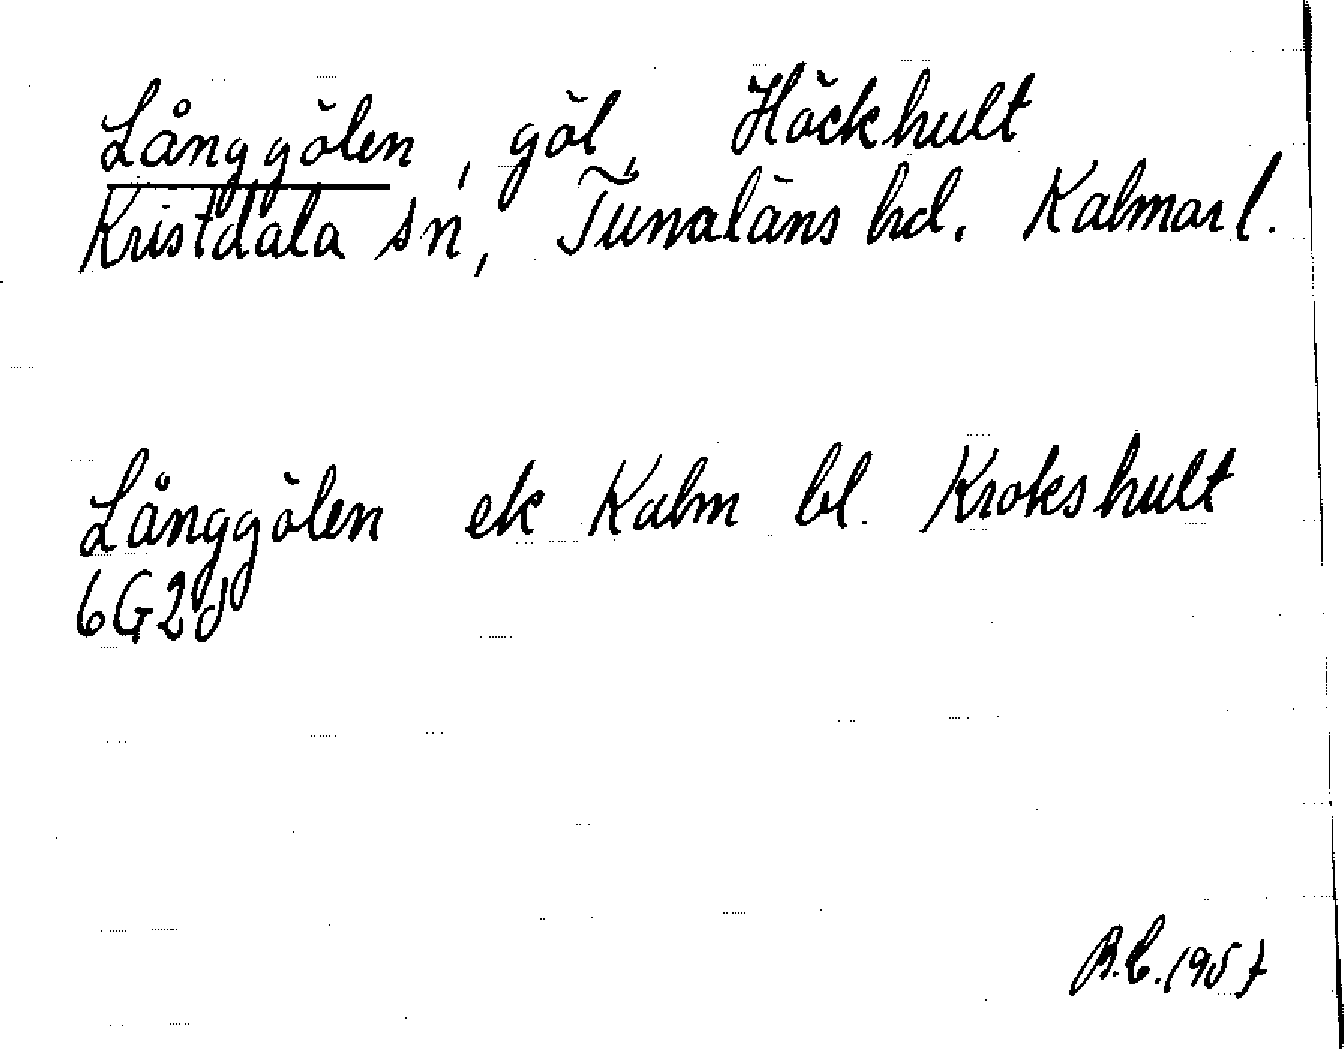 Långgölen, göl, Höckhult
Kristdala sn, Tunaläns hd. Kalmar l.
Långgölen ek Kalm bl. Krokshult
6G2d
B.C. 1957